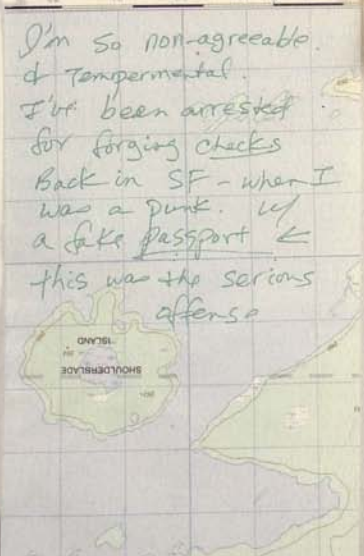 I'm so non-agreeable.
& Tempermental.
I've been arrested
for forging checks
Back in SF - when I
was a punk. w/
a fake passport ←
this was the serious
offense
SHOULDERBLADE
ISLAND